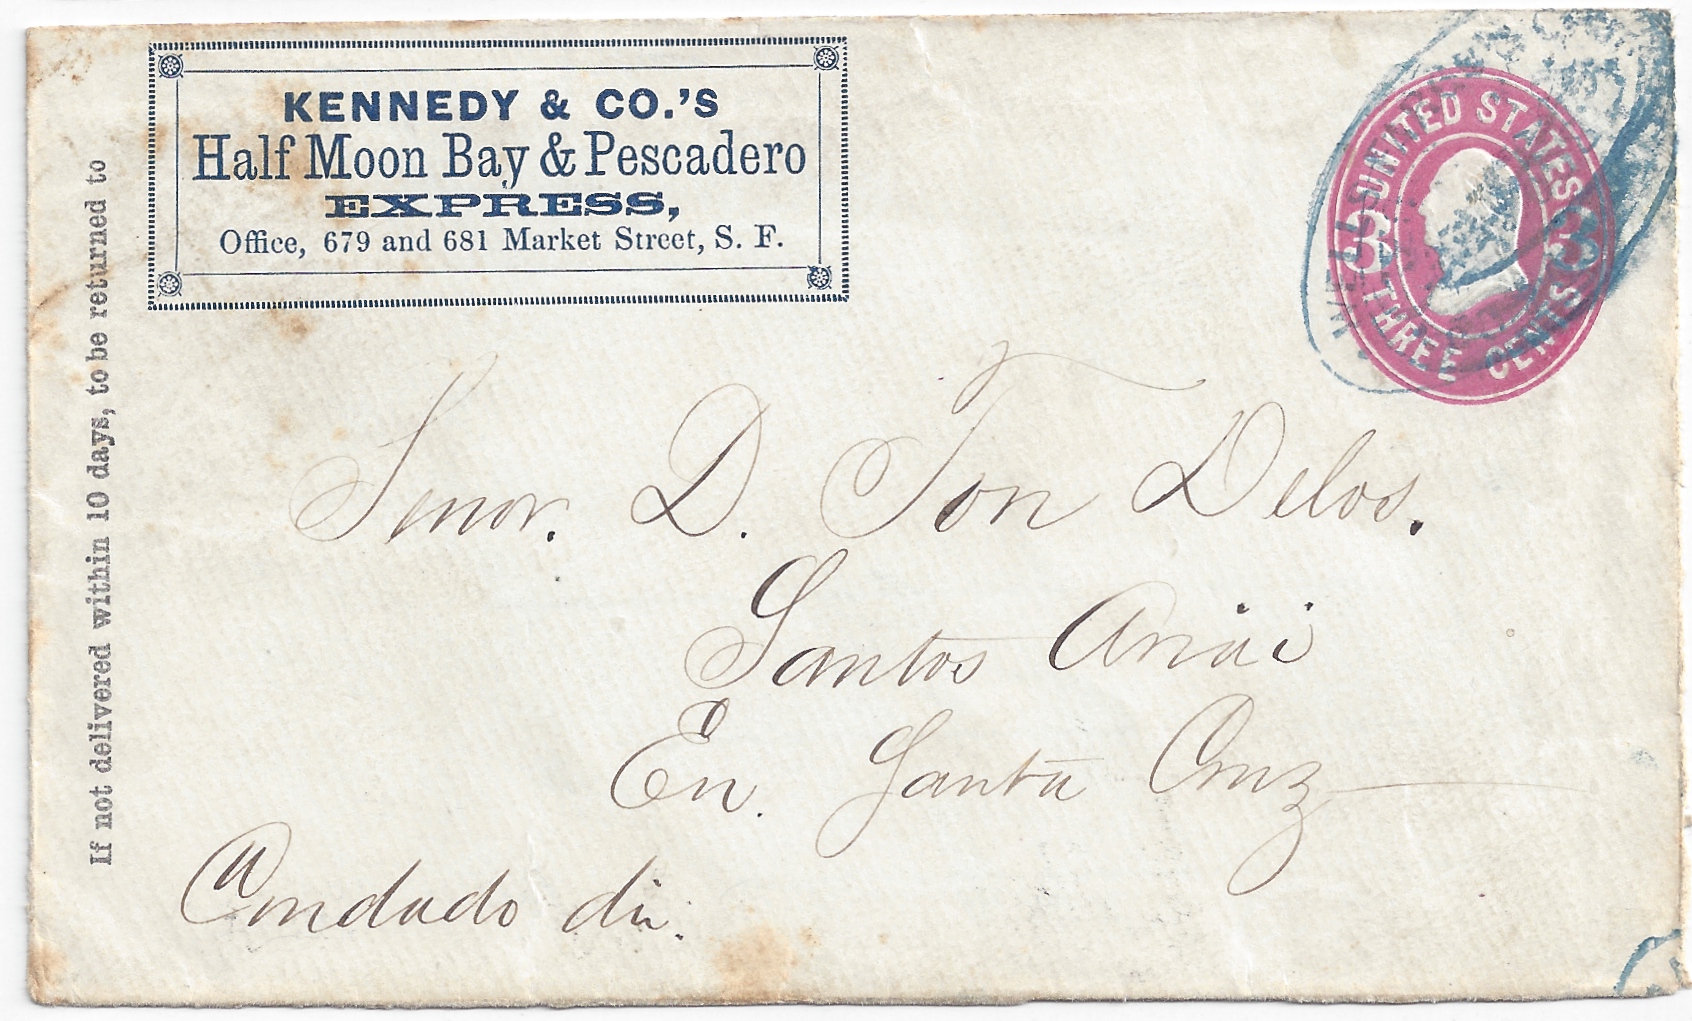 KENNEDY & CO.'S
Half Moon Bay & Pescadero
EXPRESS,
Office, 679 and 681 Market Street, S. F.
If not delivered within 10 days, to be returned to
UNITED STATES
3 3
THREE CENTS
WELL
Senor. D. Ton Delos.
Santos
En. Santa Cruz
Condado